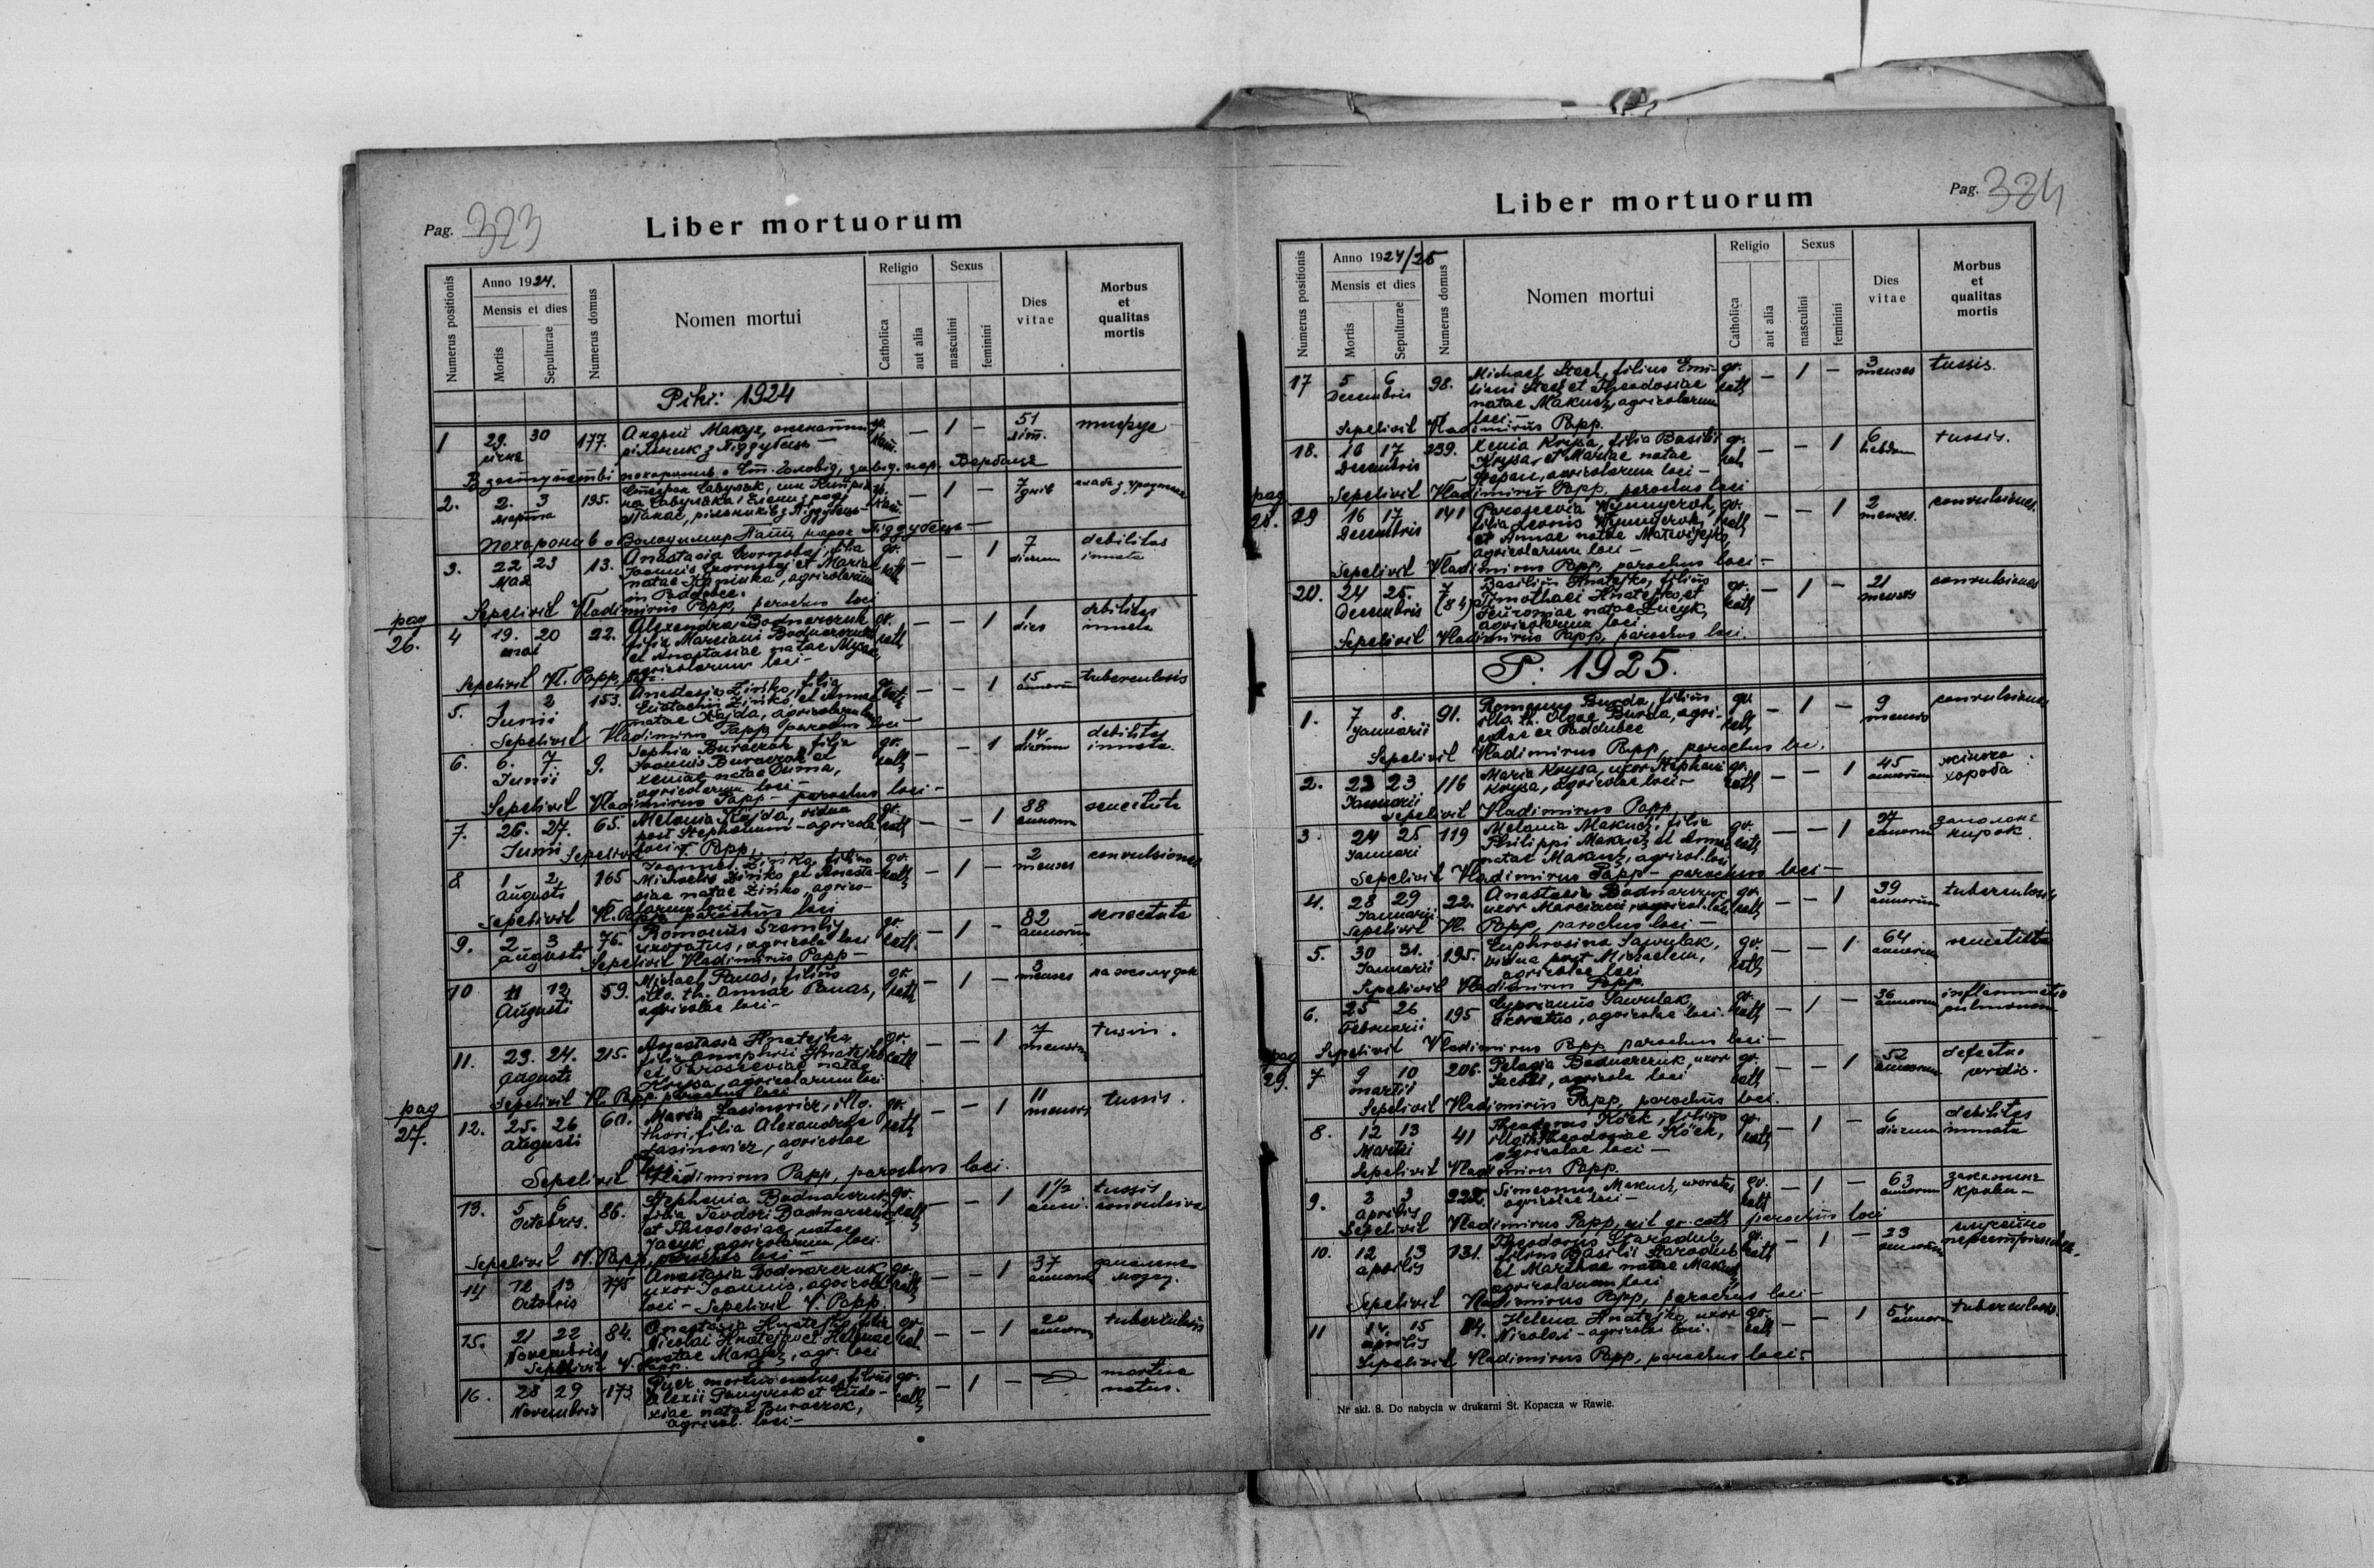 Pag. 323
Liber mortuorum
Numerus positionis
Anno 1924.
Mensis et dies
Mortis
Sepulturae
Numerus domus
Nomen mortui
Religio
Catholica
aut alia
Sexus
masculini
feminini
Dies vitae
Morbus et qualitas mortis
1924
1 29. 30 177. Андрій Макух, гр. — 1 — 51 тифус
січня рільник з Піддубець — кат. літ.
2. 2. 3 195. Савуляк, гр. — 1 — 7 днів
марта рільників з Піддубець — кат.
Похоронив о Володимир Папп парох Піддубець —
3. 22 23 13. Anastasia filia gr. — — 1 7 debilitas
Мая Joannis et Mariae cath dierum innata
natae agricolarum
in Poddubce.
Sepelivit Vladimirus Papp, parochus loci
pag 26.
4 19. 20 22. Alexandra Bodnarczuk gr. — — 1 1 debilitas
mai filia Marciani Bodnarczuk cath dies innata
et Anastasiae natae
agricolarum loci —
Sepelivit Vl. Papp,
5. 1 2 153. Anastasia Zińko, filia gr. — — 1 15 tuberculosis
Junii Eustachii Zińko et Annae cath annorum
natae Hajda, agricolarum
Sepelivit Vladimirus Papp parochus loci —
6. 6. 7. 9. Sophia Buraczok filia gr. — — 1 14 debilitas
Junii Joannis Buraczok et cath dierum innata.
Xeniae natae Duma,
agricolarum loci —
Sepelivit Vladimirus Papp — parochus loci —
7. 26. 27. 65. Melania Hajda, vidua gr. — — 1 88 senectute
Junii post Stephanum — agricola cath annorum
loci —
Sepelivit V. Papp,
8 1 2 165 Joannes Zińko, filius gr. — 1 — 2 convulsiones
augusti Michaelis Zińko et Anasta- cath menses
siae natae Zińko, agrico-
larum loci
Sepelivit Vl. Papp parochus loci
9. 2 3 76. Romanus gr. — 1 — 82 senectute
augusti uxoratus, agricola loci cath annorum
Sepelivit Vladimirus Papp —
10 11 12 59. Michael Panas, filius gr. — 1 — 3
Augusti illo. th. Annae Panas, cath menses
agricolae loci —
11. 23. 24. 215. Anastasia Hnatejko, gr. — — 1 7 tussis.
Augusti filia Onuphrii Hnatejko cath mensium
et Parasceviae natae
Krysa, agricolarum loci
Sepelivit Vl. Papp parochus loci
pag 27.
12. 25. 26 60. Maria Jasinowicz, illo. gr. — — 1 11 tussis.
augusti thori, filia Alexandrae cath mensis
Jasinowicz, agricolae
loci —
Sepelivit Vladimirus Papp, parochus loci.
13. 5 6 86. Stephania Bodnarczuk gr. — — 1 1½ tussis
Octobris. filia Teodori Bodnarczuk cath anni. convulsiva
et Theodosiae natae
Jacyk, agricolarum loci.
Sepelivit Vl. Papp, parochus loci —
14 12 13 175 Anastasia Bodnarczuk gr. — — 1 37
Octobris uxor Joannis, agricolae cath annorum мозгу.
loci — Sepelivit V. Papp.
15. 21 22 84. Anastasia Hnatejko, filia gr. — — 1 20 tuberculosis
Novembris Nicolai Hnatejko et Helenae cat. annorum
natae Makuch, agr. loci
Sepelivit V. Papp.
16. 28 29 173 Puer mortuo natus, filius gr. — 1 — mortuo
Novembris Alexii et Eudo- cath natus.
xiae natae Buraczok,
agricol. loci —
Pag. 324
Liber mortuorum
Numerus positionis
Anno 1924/25
Mensis et dies
Mortis
Sepulturae
Numerus domus
Nomen mortui
Religio
Catholica
aut alia
Sexus
masculini
feminini
Dies vitae
Morbus et qualitas mortis
17 5 6 98. Michael Stech, filius Emi- gr. — 1 — 3 tussis.
Decembris liani Stech et Theodosiae cath menses
natae Makuch, agricolarum
loci —
Sepelivit Vladimirus Papp.
18. 16 17 239. Xenia Krysa, filia Basilii gr. — — 1 6 tussis.
Decembris Krysa, et Mariae natae cath hebdom
agricolarum loci —
Sepelivit Vladimirus Papp, parochus loci
pag 28.
19 16 17 141 Parascevia filia Leonis gr. — — 1 2 convulsiones
Decembris et Annae natae cath menses.
agricolarum loci —
Sepelivit Vladimirus Papp, parochus loci —
20. 24 25. 7 Basilius Hnatejko, filius gr. — 1 — 21 convulsiones
Decembris (84) Timothaei Hnatejko, et cath mensis
natae agricolarum loci
Sepelivit Vladimirus Papp, parochus loci.
P. 1925.
1. 7 8. 91. Romanus Burda, filius gr. — 1 — 9 convulsiones
Januarii illo. th. Olgae Burda, agri- cath mensis
colae ex Poddubce
Sepelivit Vladimirus Papp, parochus loci.
2. 23 23 116 Maria Krysa, uxor Stephani gr. — — 1 45 жіноча
Januarii Krysa, agricolae loci — cath annorum хороба
Sepelivit Vladimirus Papp
3. 24 25 119 Melania Makuch, filia gr. — — 1 27
Januari Philippi Makuch et Annae cath annorum нирок.
natae Makuch, agricol. loci
Sepelivit Vladimirus Papp — parochus loci —
4. 28 29 22. Anastasia Bodnarczuk gr. — — 1 39 tuberculosis
Januarii uxor Marciani, agricol. loci cath annorum
Sepelivit Vl. Papp, parochus loci —
5. 30 31. 195. Euphrosina Sawulak, gr. — — 1 64 senectute
Januarii vidua post Michaelem, cath annorum
agricolae loci
Sepelivit Vladimirus Papp.
6. 25 26 195 Cyprianus Sawulak, gr. — 1 — 36 inflammatio
Februarii uxoratus, agricolae loci. cath annorum pulmonum
Sepelivit Vladimirus Papp parochus loci —
pag 29.
7 9 10 206. Pelagia Bodnarczuk, uxor gr. — — 1 52 defectus
martii agricola loci cath annorum cordis.
Sepelivit Vladimirus Papp, parochus loci.
8. 12 13 41 Theodorus filius gr. — 1 — 6 debilitas
Martii Theodosiae cath dierum innata
agricolae loci —
Sepelivit Vladimirus Papp.
9. 2 3 Simeonus Makuch, uxoratus gr. — 1 — 63
Aprilis agricolae loci — cath annorum крови —
Sepelivit Vladimirus Papp, gr. cath parochus loci
10. 12 13 131. Theodorus Staradub, gr. — 1 — 23
aprilis filius Basilii Staradub cath annorum
et Marthae natae Makuch
agricolarum loci
Sepelivit Vladimirus Papp, parochus loci —
11 14. 15 84. Helena Hnatejko, uxor gr. — — 1 54 tuberculosis
aprilis Nicolai — agricolae loci. cath annorum
Sepelivit Vladimirus Papp, parochus loci —
Nr skł. 8. Do nabycia w drukarni St. Kopacza w Rawie.